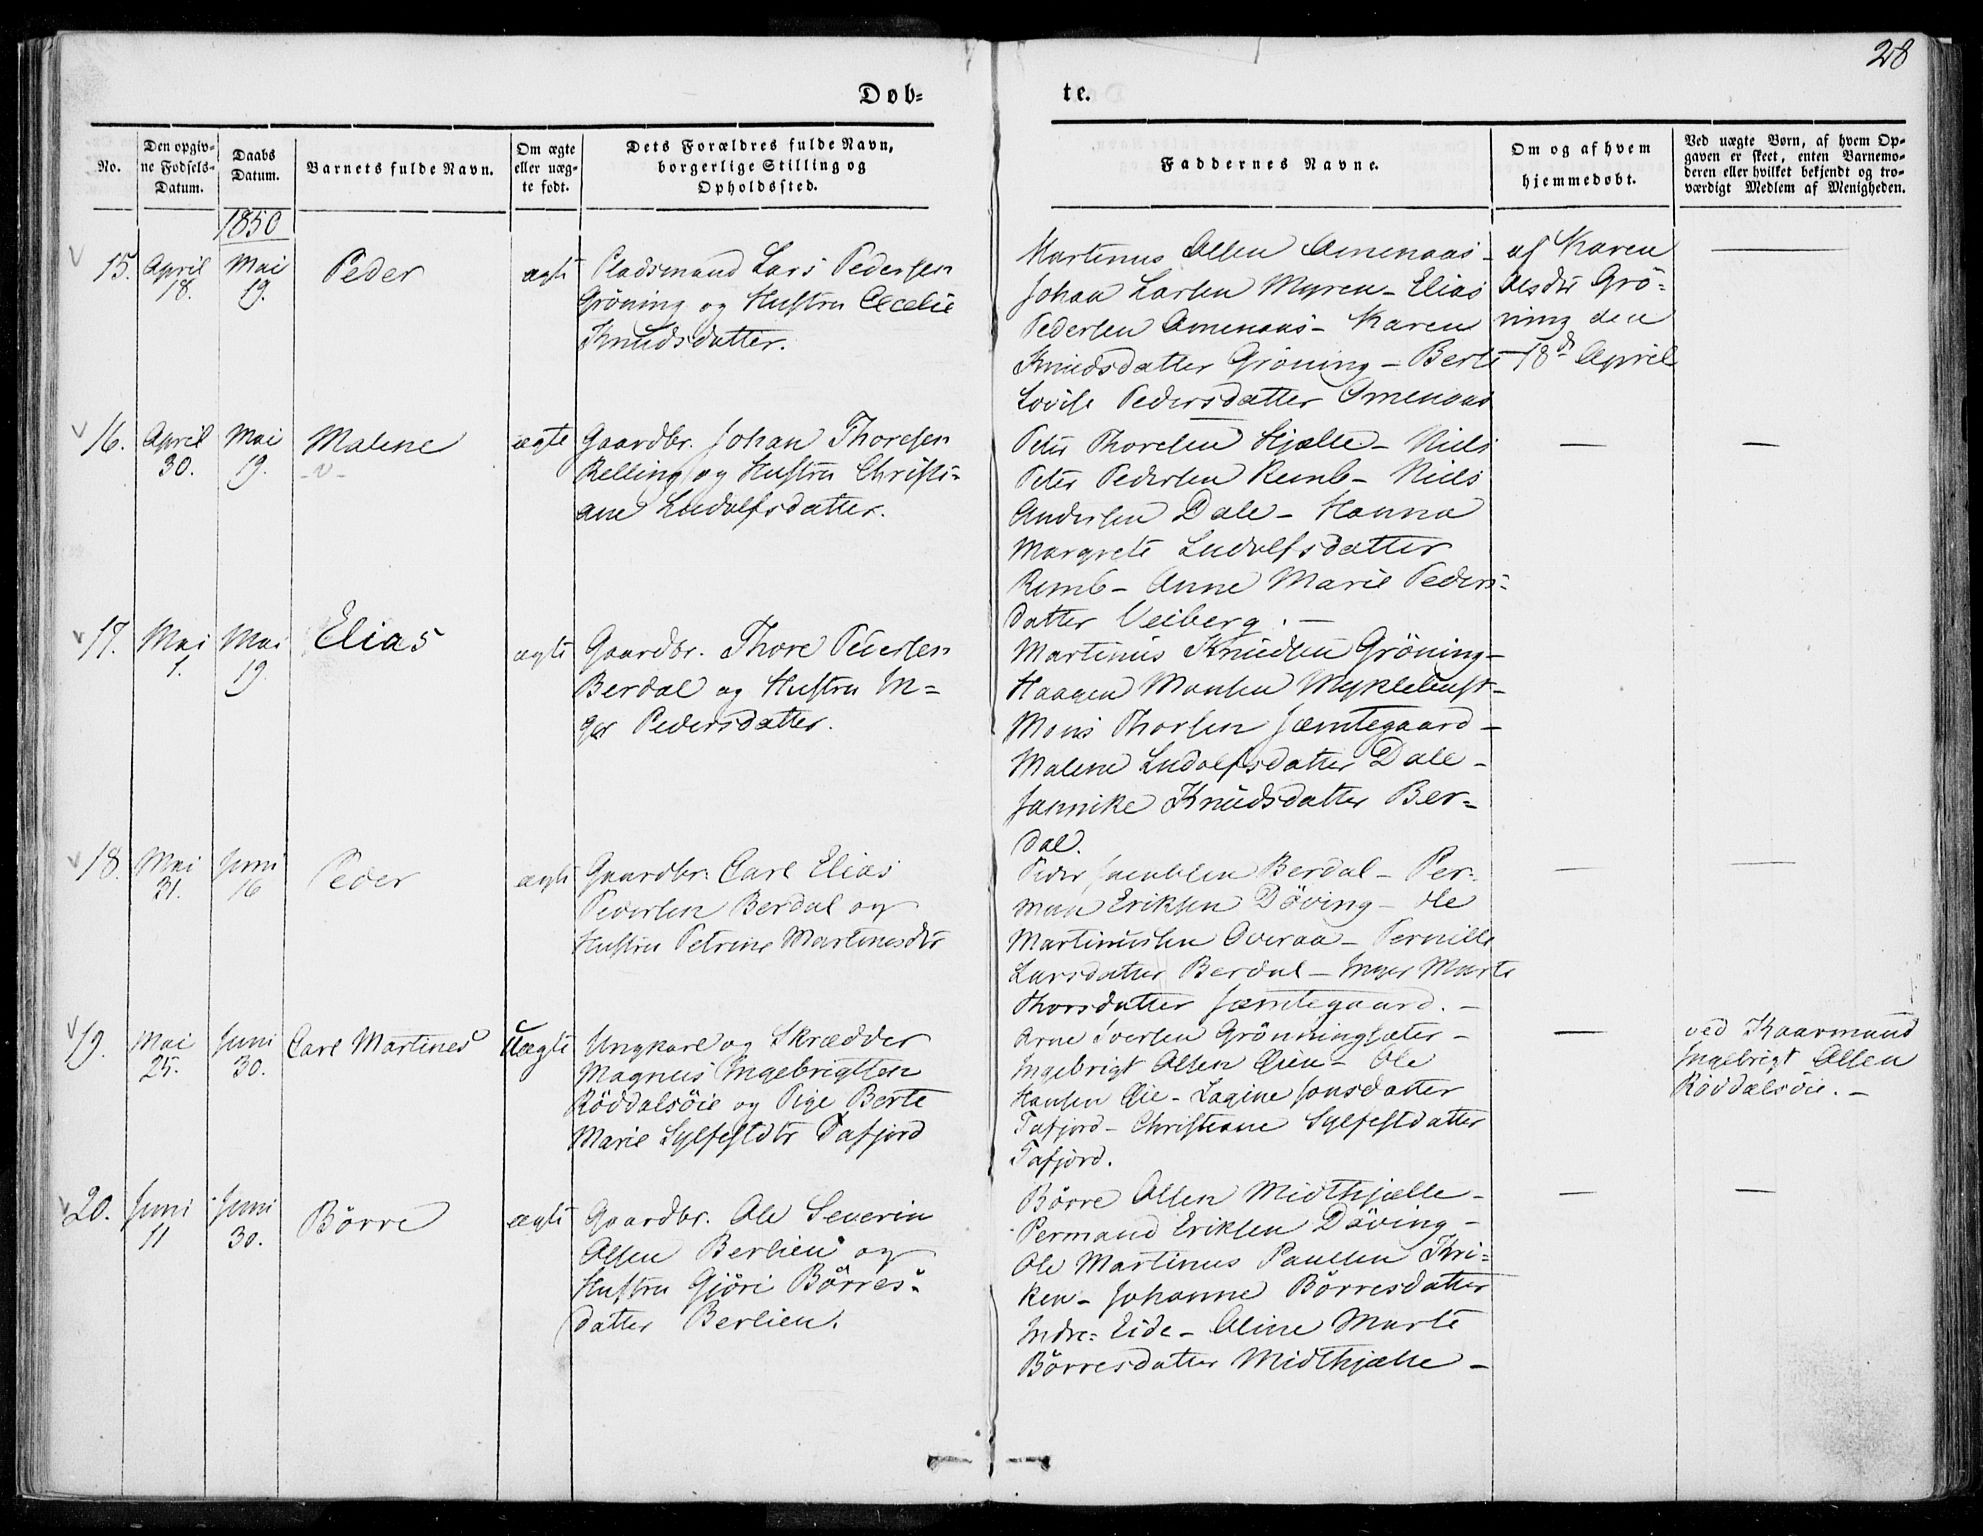 28
Døb=
te.
No.
Den opgiv-
ne Fødsels-
Datum.
Daabs
Datum.
Barnets fulde Navn.
Om ægte
eller uæg-
te født.
Dets Forældres fulde Navn,
borgerlige Stilling og
Opholdssted.
Faddernes Navne.
Om og af hvem
hjemmedøbt.
Ved uægte Børn, af hvem Op-
gaven er skeet, enten Barnemo-
deren eller hvilket bekjendt og tro-
værdigt Medlem af Menigheden.
1850
15.
April
18.
Mai
19.
Peder
ægte
Pladsmand Lars Pedersen
Gröning og Hustru Cecelie
Knudsdatter.
Martinus Olsen Omenaas -
Johan Larsen Myren - Elias
Pedersen Omenaas - Karen
Knudsdatter Gröning - Berte
Lovise Pedersdatter Omenaas
af Karen
Grö-
ning den
18d April
16.
April
30.
Mai
19.
Malene
ægte
Gaardbr. Johan Thoresen
Relling og Hustru Christi-
ane Ludolfsdatter.
Peter Thoresen Hjælle - Niels
Peter Pedersen Remb - Niels
Andersen Dale - Hanna
Margrete Ludolfsdatter
Remb - Anne Marie Peders-
datter Veiberg. -
17.
Mai
1.
Mai
19.
Elias
ægte
Gaardbr. Thore Pedersen
Berdal og Hustru In-
ger Pedersdatter.
Martinus Knudsen Gröning -
Haagen Monsen Myklebust -
Mons Thorsen Jæmtegaard -
Malene Ludolfsdatter Dale -
Jannike Knudsdatter Ber-
dal.
18.
Mai
31.
Juni
16
Peder
ægte
Gaardbr: Carl Elias
Pedersen Berdal og
Hustru Petrine Martinusdtr
Peder Jacobsen Berdal - Per-
man Eriksen Döving - Ole
Martinussen Overaa - Pernille
Larsdatter Berdal - Inger Marte
Thorsdatter Jæmtegaard. -
19.
Mai
25.
Juni
30.
Carl Martines
Uægte
Ungkarl og Skrædder
Magnus Ingebrigtsen
Röddalsöie og Pige Berte
Marie Sylfestdtr Tafjord
Arne Iversen Grönningsæter -
Ingebrigt Olsen Öien - Ole
Hansen Öie - Lagine Jonsdatter
Tafjord - Christiane Sylfestdatter
Tafjord.
ved Kaarmand
Ingebrigt Olsen
Röddalsöie. -
20.
Juni
11
Juni
30.
Börre
ægte
Gaardbr. Ole Severin
Olsen Berlien og
Hustru Gjöri Börres-
datter Berlien.
Börre Olsen Midthjælle -
Permand Eriksen Döving -
Ole Martinus Paulsen Kri-
ken - Johanne Börresdatter
Indre-Eide - Oline Marte
Börresdatter Midthjælle -